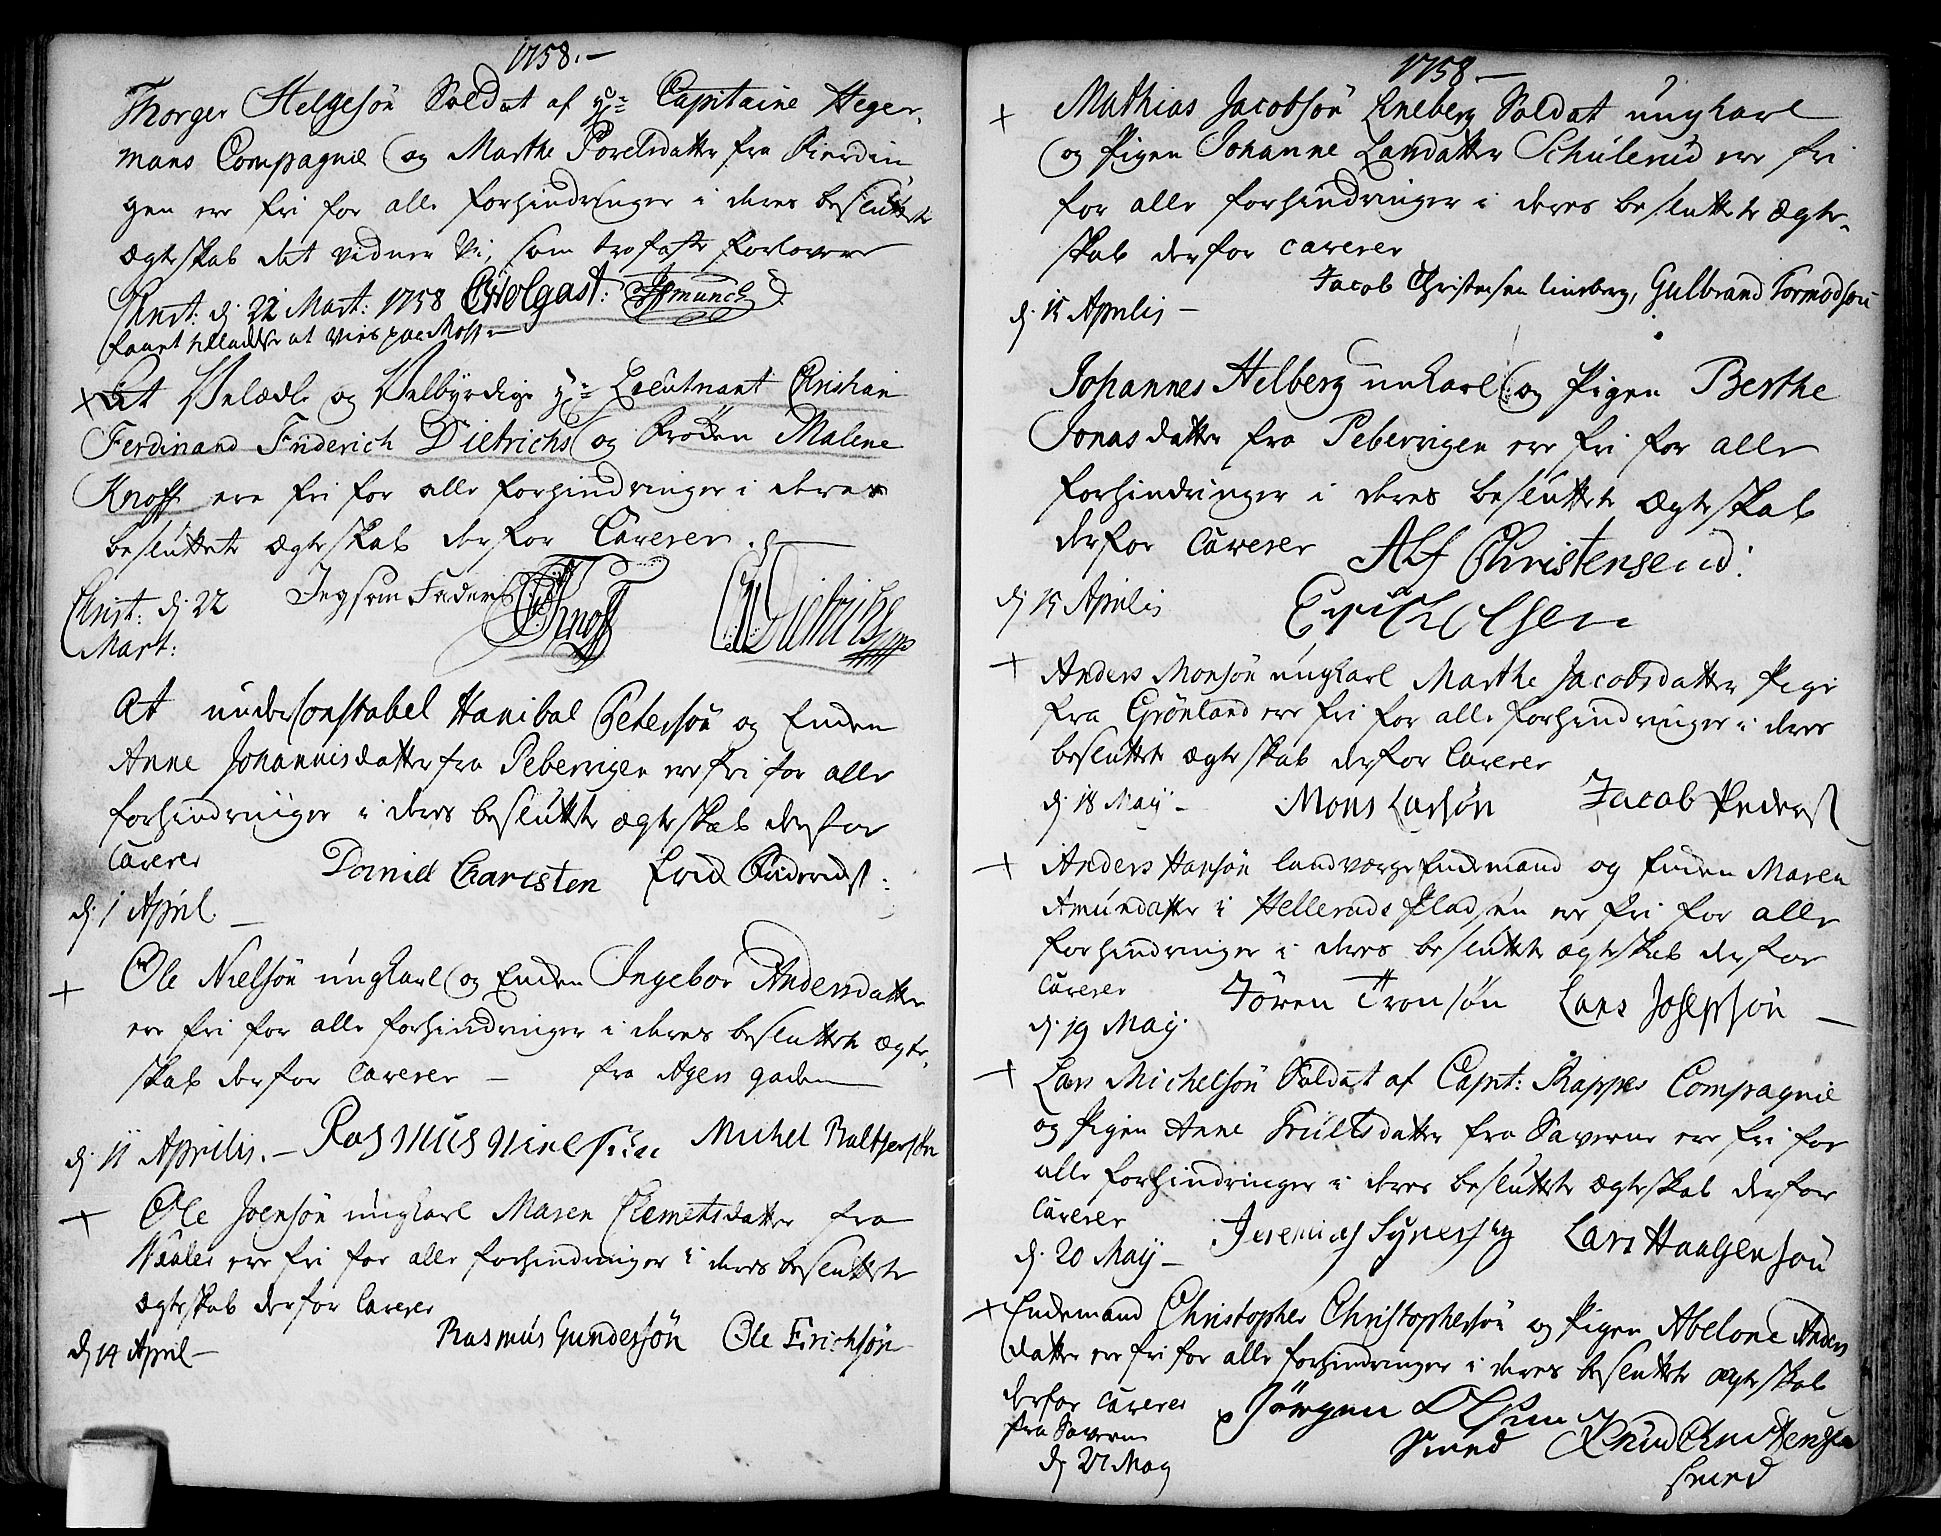 1758.—
Thorger Helgesön Soldat af Hr: Capitaine Heger-
mans Compagnie og Marthe Porelsdatter fra Fierdin
gen ere fri for alle forhindringer i deres besluttet
Ægteskab det vidner Vi, som trofaste forlovere
Christ: d: 22 Mart: 1758 CWolgast: Munch
faaet tilladelse at vies paa Moss—
+ At Velædle og Velbyrdige Hr: Lieutnant Christian
Ferdinand Friderich Dietrichs og Frøken Malene
Knoff ere fri for alle forhindringer i deres
besluttete ægteskab derfor Caverer.
Christ: d: 22
Mart:
Jeg som Fader Knoff Dietrichs
At underConstabel Hanibal Petersön og Enken
Anne Johannisdatter fra Pebervigen ere fri for alle
forhindringer i deres besluttete ægteskab derfor
Caverer
Daniel Charisten
d. 1 April.—
+ Ole Nielsön ungkarl og Enken Ingebor Andersdatter
ere fri for alle forhindringer i deres besluttete ægte-
skab derfor Caverer — fra Agers gaden
d. 11 Aprilis.— Rasmus Nielsön Michel Baltzersön
+ Ole Joensön ungkarl Maren Clemetsdatter fra
Vaaler ere fri for alle forhindringer i deres besluttete
ægteskab derfor Caverer
Rasmus Gundersön Ole Erichsön
d. 14 April—
1758.—
+ Mathias Jacobsön Lineberg Soldat ungkarl
og Pigen Johanne Larsdatter Schulerud ere fri
for alle forhindringer i deres besluttete Ægte-
skab derfor caverer
Jacob Christensen Lineberg, Gulbrand Tormodsön
d. 15 Aprilis—
Johannes Helberg unkarl og Pigen Berthe
Jonasdatter fra Pebervigen ere fri for alle
forhindringer i deres besluttete Ægteskab
derfor Caverer Alf Christensend:
d. 15 Aprilis Erich Olsen
+ Anders Monsön ungkarl Marthe Jacobsdatter Pige
fra Grönland ere fri for alle forhindringer i deres
besluttete ægteskab derfor Caverer
d. 18 Maij— Mons Larsön Jacob Peders
+ Anders Hansön landværge Enkemand og Enken Maren
Amundatter i Hellerudspladsen ere fri for alle
forhindringer i deres besluttete ægteskab derfor
Caverer
Sören Tronsön Lars Josepsön—
d. 19 Maij.
+ Lars Michelsön Soldat af Capt: Rappes Compagnie
og Pigen Anne Trulsdatter fra Saverne ere fri for
alle forhindringer i deres besluttete Ægteskab derfor
Caverer
Lars Haagensön
d. 20 Maij—
+ Enkemand Christopher Christophersön og Pigen Abelone Anders
datter ere fri for alle forhindringer i deres besluttete ægteskab
derfor caverer Jörgen Olsen
fra Saverne Smed Knud Christensen
d. 27 May smed